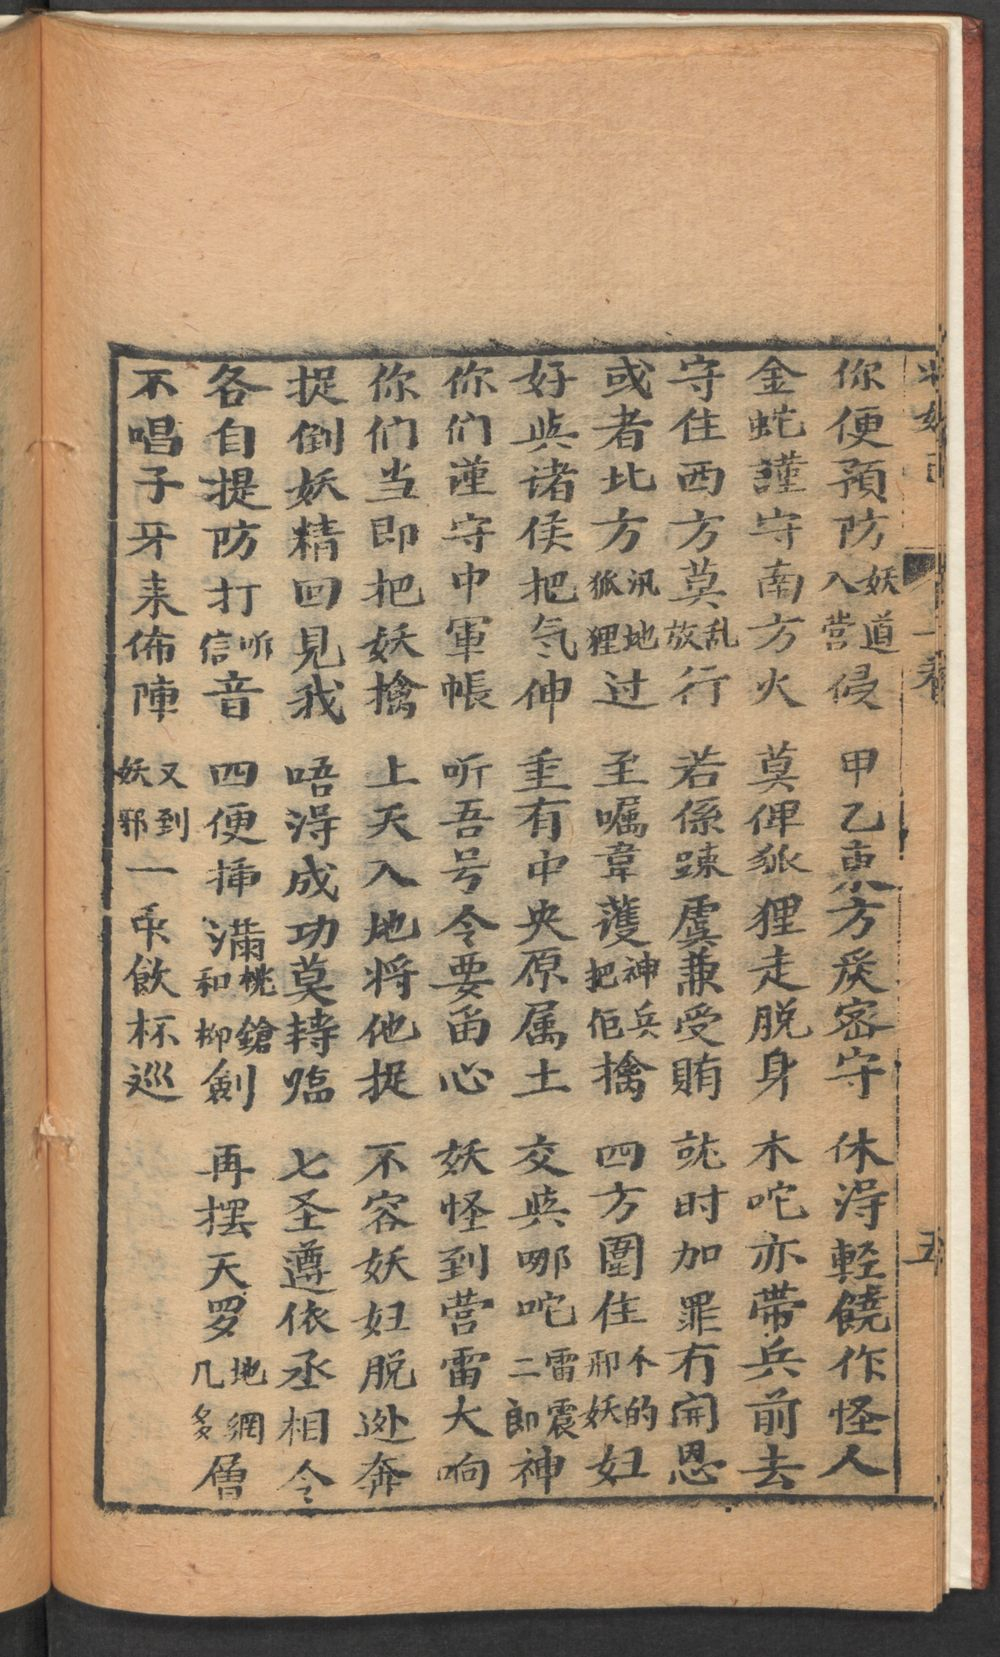 你便預防妖道入営侵　甲乙東方矦密守　休淂輕饒作怪人
金蛇謹守南方火　莫俾狐狸走脱身　木咜亦帶兵前去
守住西方莫乱放行　若係踈虞兼受賄　就时加罪冇開恩
或者北方汛地狐狸过　至嘱韋護神兵把佢擒　四方圍住个的邪妖妇
好與诸侯把气伸　重有中央原属土　交與哪咜雷震二郎神
你们谨守中軍帳　听吾号令要畄心　妖怪到营雷大响
你们当即把妖擒　上天入地将他捉　不容妖妇脱迯奔
捉倒妖精回見我　唔淂成功莫轉临　七圣遵依丞相令
各自提防打听信音　四便挿满桃鎗和柳劍　再摆天罗地網几多層
不唱子牙来佈陣　又到妖邪一早飲杯巡
二卷
五